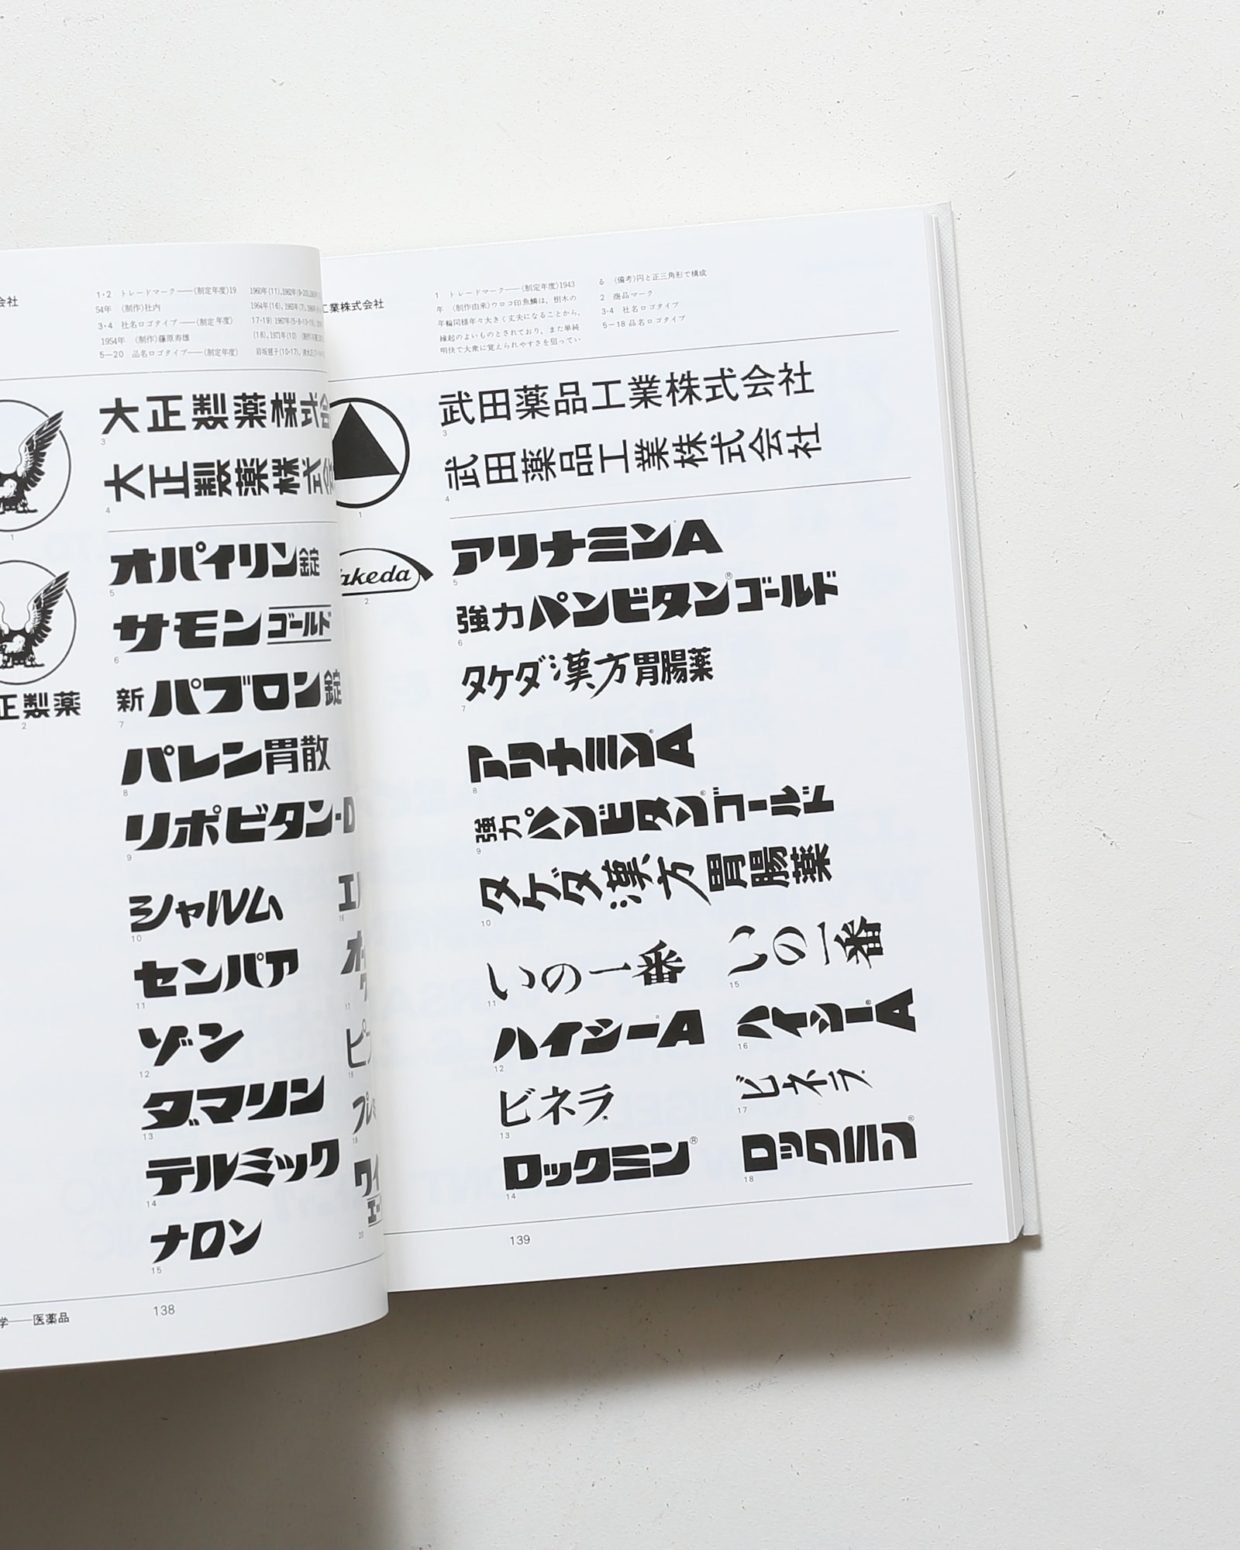 会社
1・2 トレードマーク——(制定年度)19
54年 (制作)社内
3・4 社名ロゴタイプ——(制定年度)
1954年 (制作)藤原寿雄
5—20 品名ロゴタイプ——(制定年度)
大正製薬株式会
3
大正製薬株式会
4
1
オパイリン錠
5
サモンゴールド
6
新パブロン錠
7
正製薬
2
パレン胃散
8
リポビタン-D
9
シャルム
10
センパア
11
ゾンン
12
ダマリン
13
テルミック
14
ナロン
15
学——医薬品
138
工業株式会社
1 トレードマーク——(制定年度)1943
年 (制作由来)ウロコ印魚鱗は、樹木の
年輪同様年々大きく丈夫になることから、
縁起のよいものとされており、また単純
明快で大衆に覚えられやすさを狙ってい
る (備考)円と正三角形で構成
2 商品マーク
3・4 社名ロゴタイプ
5—18 品名ロゴタイプ
武田薬品工業株式会社
3
武田薬品工業株式会社
4
1
akeda
2
アリナミンA
5
強力パンビタン®ゴールド
6
タケダ漢方胃腸薬
7
アリナミンA
8
強力パンビタン®ゴールド
9
タケダ漢方胃腸薬
10
いの一番
11
いの一番
15
ハイシーA
12
ハイシーA
16
ビネラ
13
ビネラ
17
ロックミン®
14
ロックミン®
18
139